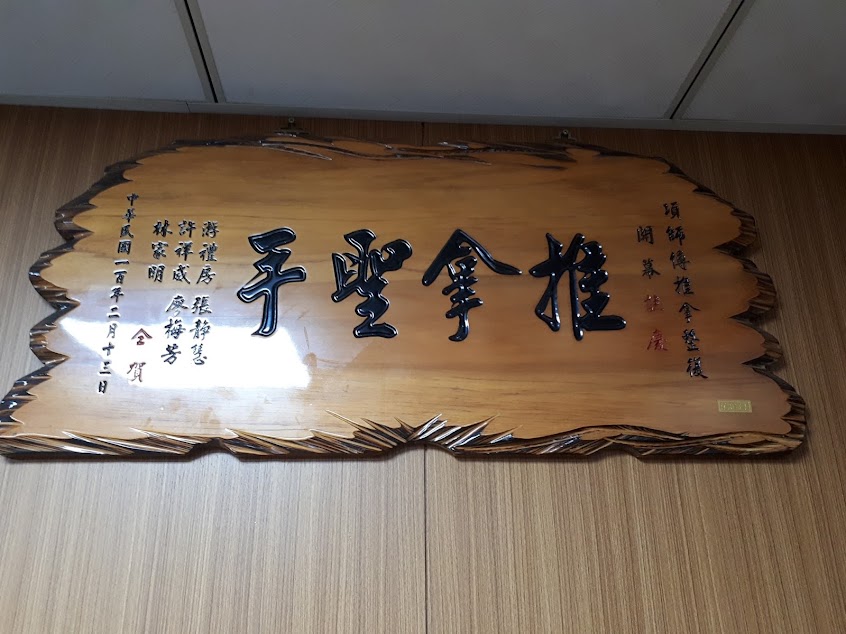 項師傅推拿整復
開幕誌慶
推拿聖手
游禮房 張靜慧
許祥威 廖梅芳
林家明
仝賀
中華民國一百年二月十三日